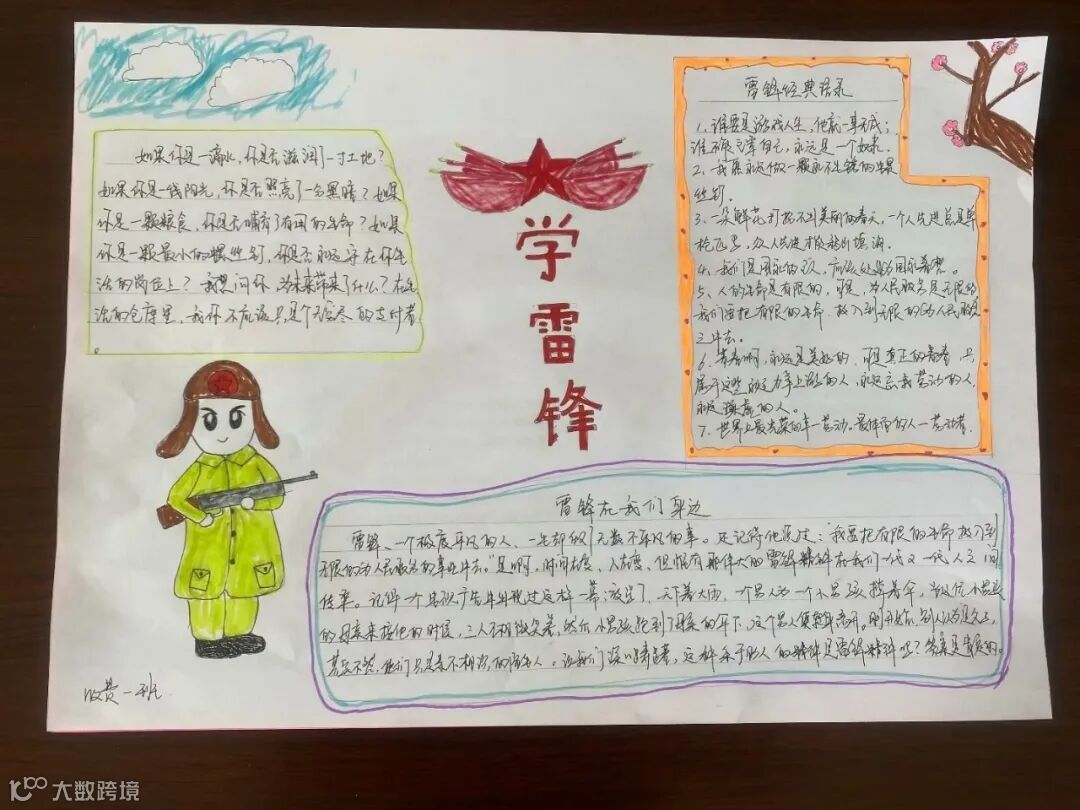 学
雷
锋
如果你是一滴水，你是否滋润了一寸土地？
如果你是一线阳光，你是否照亮了一分黑暗？如果
你是一颗粮食，你是否哺育了有用的生命？如果
你是一颗最小的螺丝钉，你是否永远守在你生
活的岗位上？我想问你，为未来带来了什么？在生
活的仓库里，我们不应该只是个无穷尽的支付者
。
雷锋经典语录
1、谁要是游戏人生，他就一事无成；
谁不能主宰自己，永远是一个奴隶。
2、我愿永远做一颗永不生锈的螺
丝钉。
3、一朵鲜花打扮不出美丽的春天，一个人先进总是单
枪匹马，众人先进才能移山填海。
4、我们是国家的主人，应该处处为国家着想。
5、人的生命是有限的，可是，为人民服务是无限的
我们要把有限的生命，投入到无限的为人民服务
之中去。
6、青春啊，永远是美好的，可是真正的青春，只
属于这些力争上游的人，永远忘我劳动的人，
永远谦虚的人。
7、世界上最光荣的事—劳动。最体面的人—劳动者。
雷锋在我们身边
雷锋，一个极度平凡的人，一生却做了无数不平凡的事。还记得他说过：“我要把有限的生命投入到
无限的为人民服务的事业中去。”是啊，时间在变，人在变，但惟有那伟大的雷锋精神在我们一代又一代人之间
传承。记得一个公益广告中出现过这样一幕：放学了，天下着大雨，一个男人为一个小男孩撑着伞，当这位小男孩
的母亲来接他的时候，三人不相微笑着，然后小男孩抢到了母亲的伞下，这个男人便默默离开。刚开始，别人以为是父子，
其实不然，他们只是素不相识的陌生人。让我们深思着，这种乐于助人的精神是雷锋精神吗？答案是肯定的。
收费一班
大数跨境